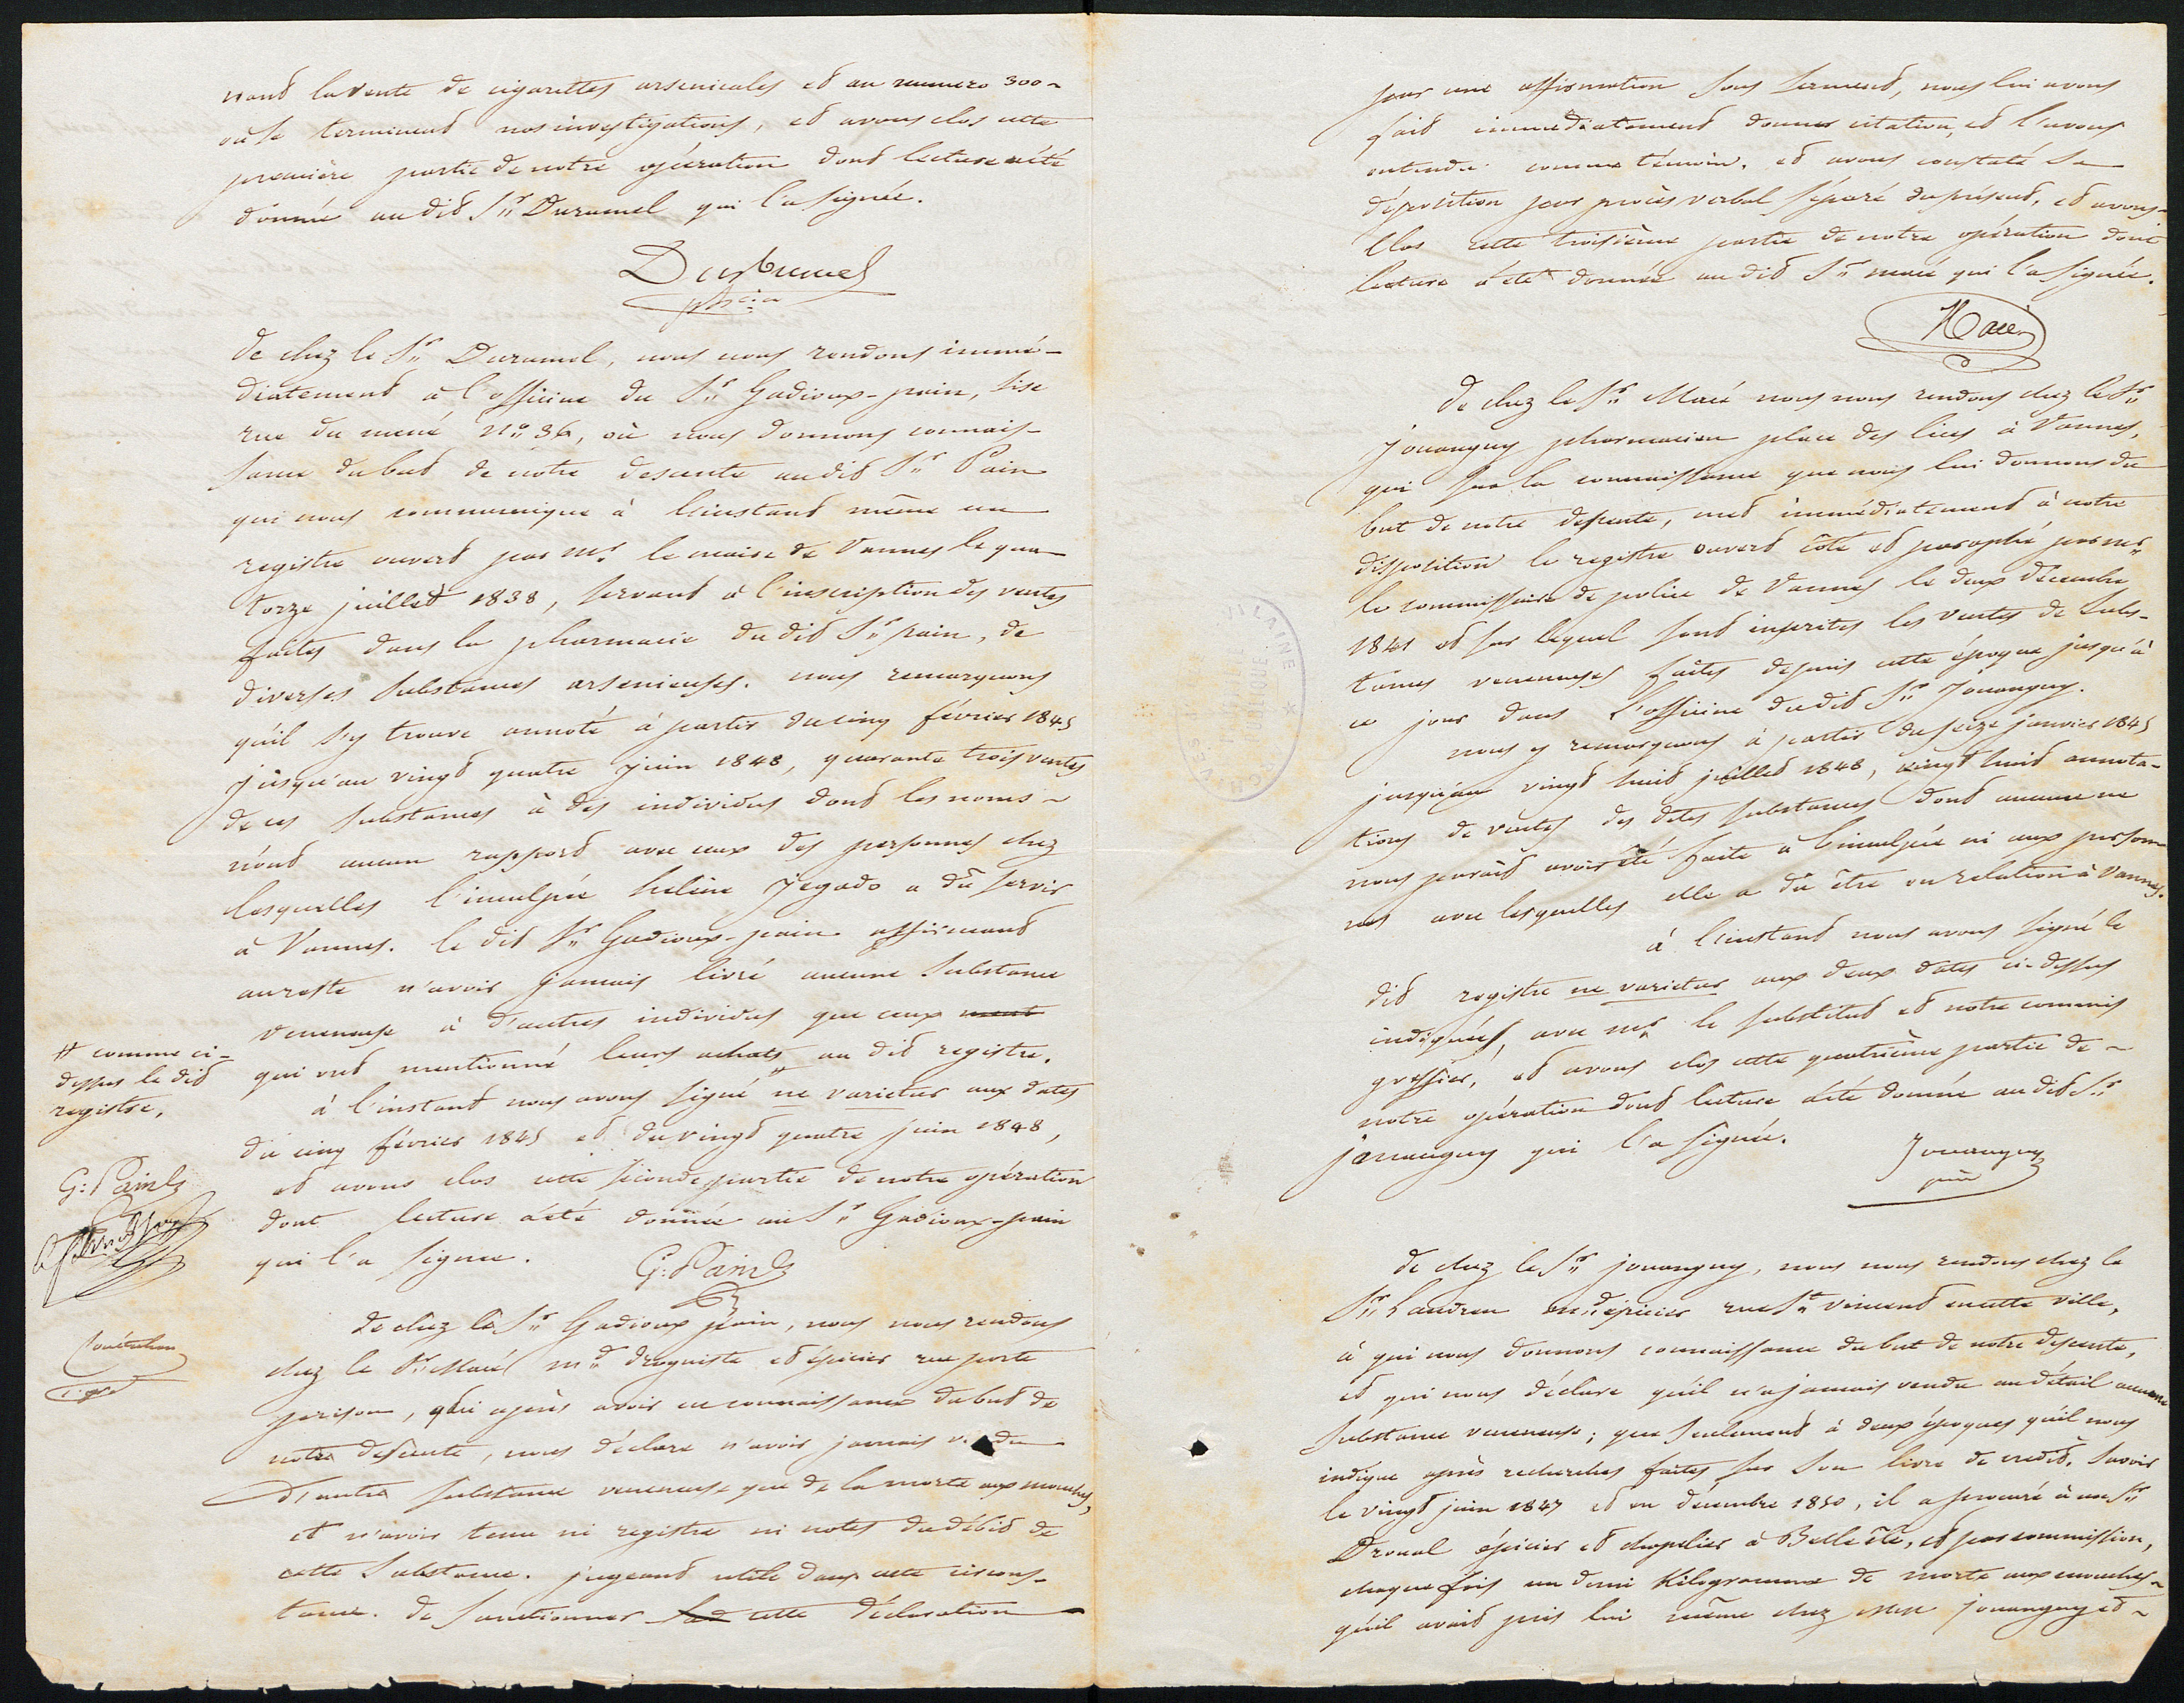 nant la vente de cigarettes arsenicales et au numero 300 -
où se terminent nos investigations, et avons clos cette
première partie de notre opération dont lecture a été
donnée au dit Sr. Duramel qui l'a signée.
de chez le Sr. Duramel, nous nous rendons immé-
diatement à l'officine du Sr. Gadioux-pain, sise
rue du mené No. 36, où nous donnons connais-
sance du but de notre descente au dit Sr. Pain
qui nous communique à l'instant même un
registre ouvert par mr. le maire de Vannes le qua-
torze juillet 1838, servant à l'inscription des ventes
faites dans la pharmacie du dit Sr. pain, de
diverses substances arsenieuses. nous remarquons
qu'il s'y trouve annoté à partir du cinq février 1845
jusqu'au vingt quatre juin 1848, quarante trois ventes
de ces substances à des individus dont les noms -
n'ont aucun rapport avec ceux des personnes chez
lesquelles l'inculpée helène Jegado a dû servir
à Vannes. le dit Sr. Gadioux-pain affirmant
au reste n'avoir jamais livré aucune substance
veneneuse à d'autres individus que ceux ment
qui ont mentionné leurs achats au dit registre.
à l'instant nous avons signé # ne varietur aux dates
du cinq février 1845 et du vingt quatre juin 1848,
et avons clos cette seconde partie de notre opération
dont lecture a été donnée au Sr. Gadioux-pain
qui l'a signée.
G: Pain
# comme ci-
dessus le dit
registre.
G: Pain
de chez le Sr. Gadioux pain, nous nous rendons
chez le Sr. Macé md. droguiste et épicier rue porte
prison, qui après avoir eu connaissance du but de
notre descente, nous déclare n'avoir jamais vendu
d'autre substance veneneuse que de la morte aux mouches,
et n'avoir tenu ni registre ni notes du débit de
cette substance. jugeant utile dans cette circons-
tance. de sanctionner sad cette déclaration
par une affirmation sous serment, nous lui avons
fait immédiatement donner citation, et l'avons
entendu comme témoin. et avons constaté sa
déposition par procès verbal séparé du présent, et avons
clos cette troisième partie de notre opération dont
lecture a été donnée au dit Sr. macé qui l'a signée.
Macé
de chez le Sr. Macé nous nous rendons chez le Sr.
Jouanguy pharmacien place des lices à Vannes,
qui sur la connaissance que nous lui donnons du
but de notre descente, met immédiatement à notre
disposition le registre ouvert coté et paraphé par mr.
le commissaire de police de Vannes le deux décembre
1841 et sur lequel sont inscrites les ventes de subs-
tances veneneuses faites depuis cette époque jusqu'à
ce jour dans l'officine du dit Sr. Jouanguy.
nous y remarquons à partir du seize janvier 1845
jusqu'au vingt huit juillet 1848, vingt huit annota-
tions de ventes des dites substances dont aucune ne
nous parait avoir été faite à l'inculpée ni aux person-
nes avec lesquelles elle a dû être en relation à Vannes.
à l'instant nous avons signé le
dit registre ne varietur aux deux dates ci-dessus
indiquées, avec mr. le substitut et notre commis
greffier, et avons clos cette quatrième partie de -
notre opération dont lecture a été donnée au dit Sr.
jouanguy qui l'a signée.
Jouanguy
de chez le Sr. jouanguy, nous nous rendons chez le
Sr. Laudren md. épicier rue St. vincent en cette ville,
à qui nous donnons connaissance du but de notre descente,
et qui nous déclare qu'il n'a jamais vendu au détail aucune
substance veneneuse; que seulement à deux époques qu'il nous
indique après recherches faites sur son livre de crédit, savoir
le vingt juin 1847 et en décembre 1850, il a procuré à un Sr.
Droual épicier et chapelier à Belle île, et par commission,
chaque fois un demi Kilogramme de morte aux mouches -
qu'il avait pris lui même chez jouanguy et -